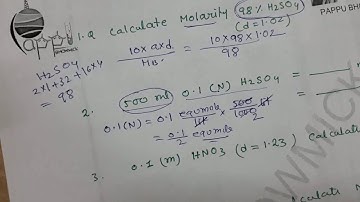 PAPPU BH
1.Q Calculate Molarity (98% H2SO4
(d=1.02)
10×a×d / MB = 10×98×1.02 / 98
H2SO4
2×1+32+16×4
= 98
2. 500 ml 0.1 (N) H2SO4 =
0.1(N) = 0.1 equmole / lit × 500 / 1000 lit
2
= 0.1 / 2 equmole
3. 0.1 (m) HNO3 (d=1.23) calculat
OWMICK
lculate N